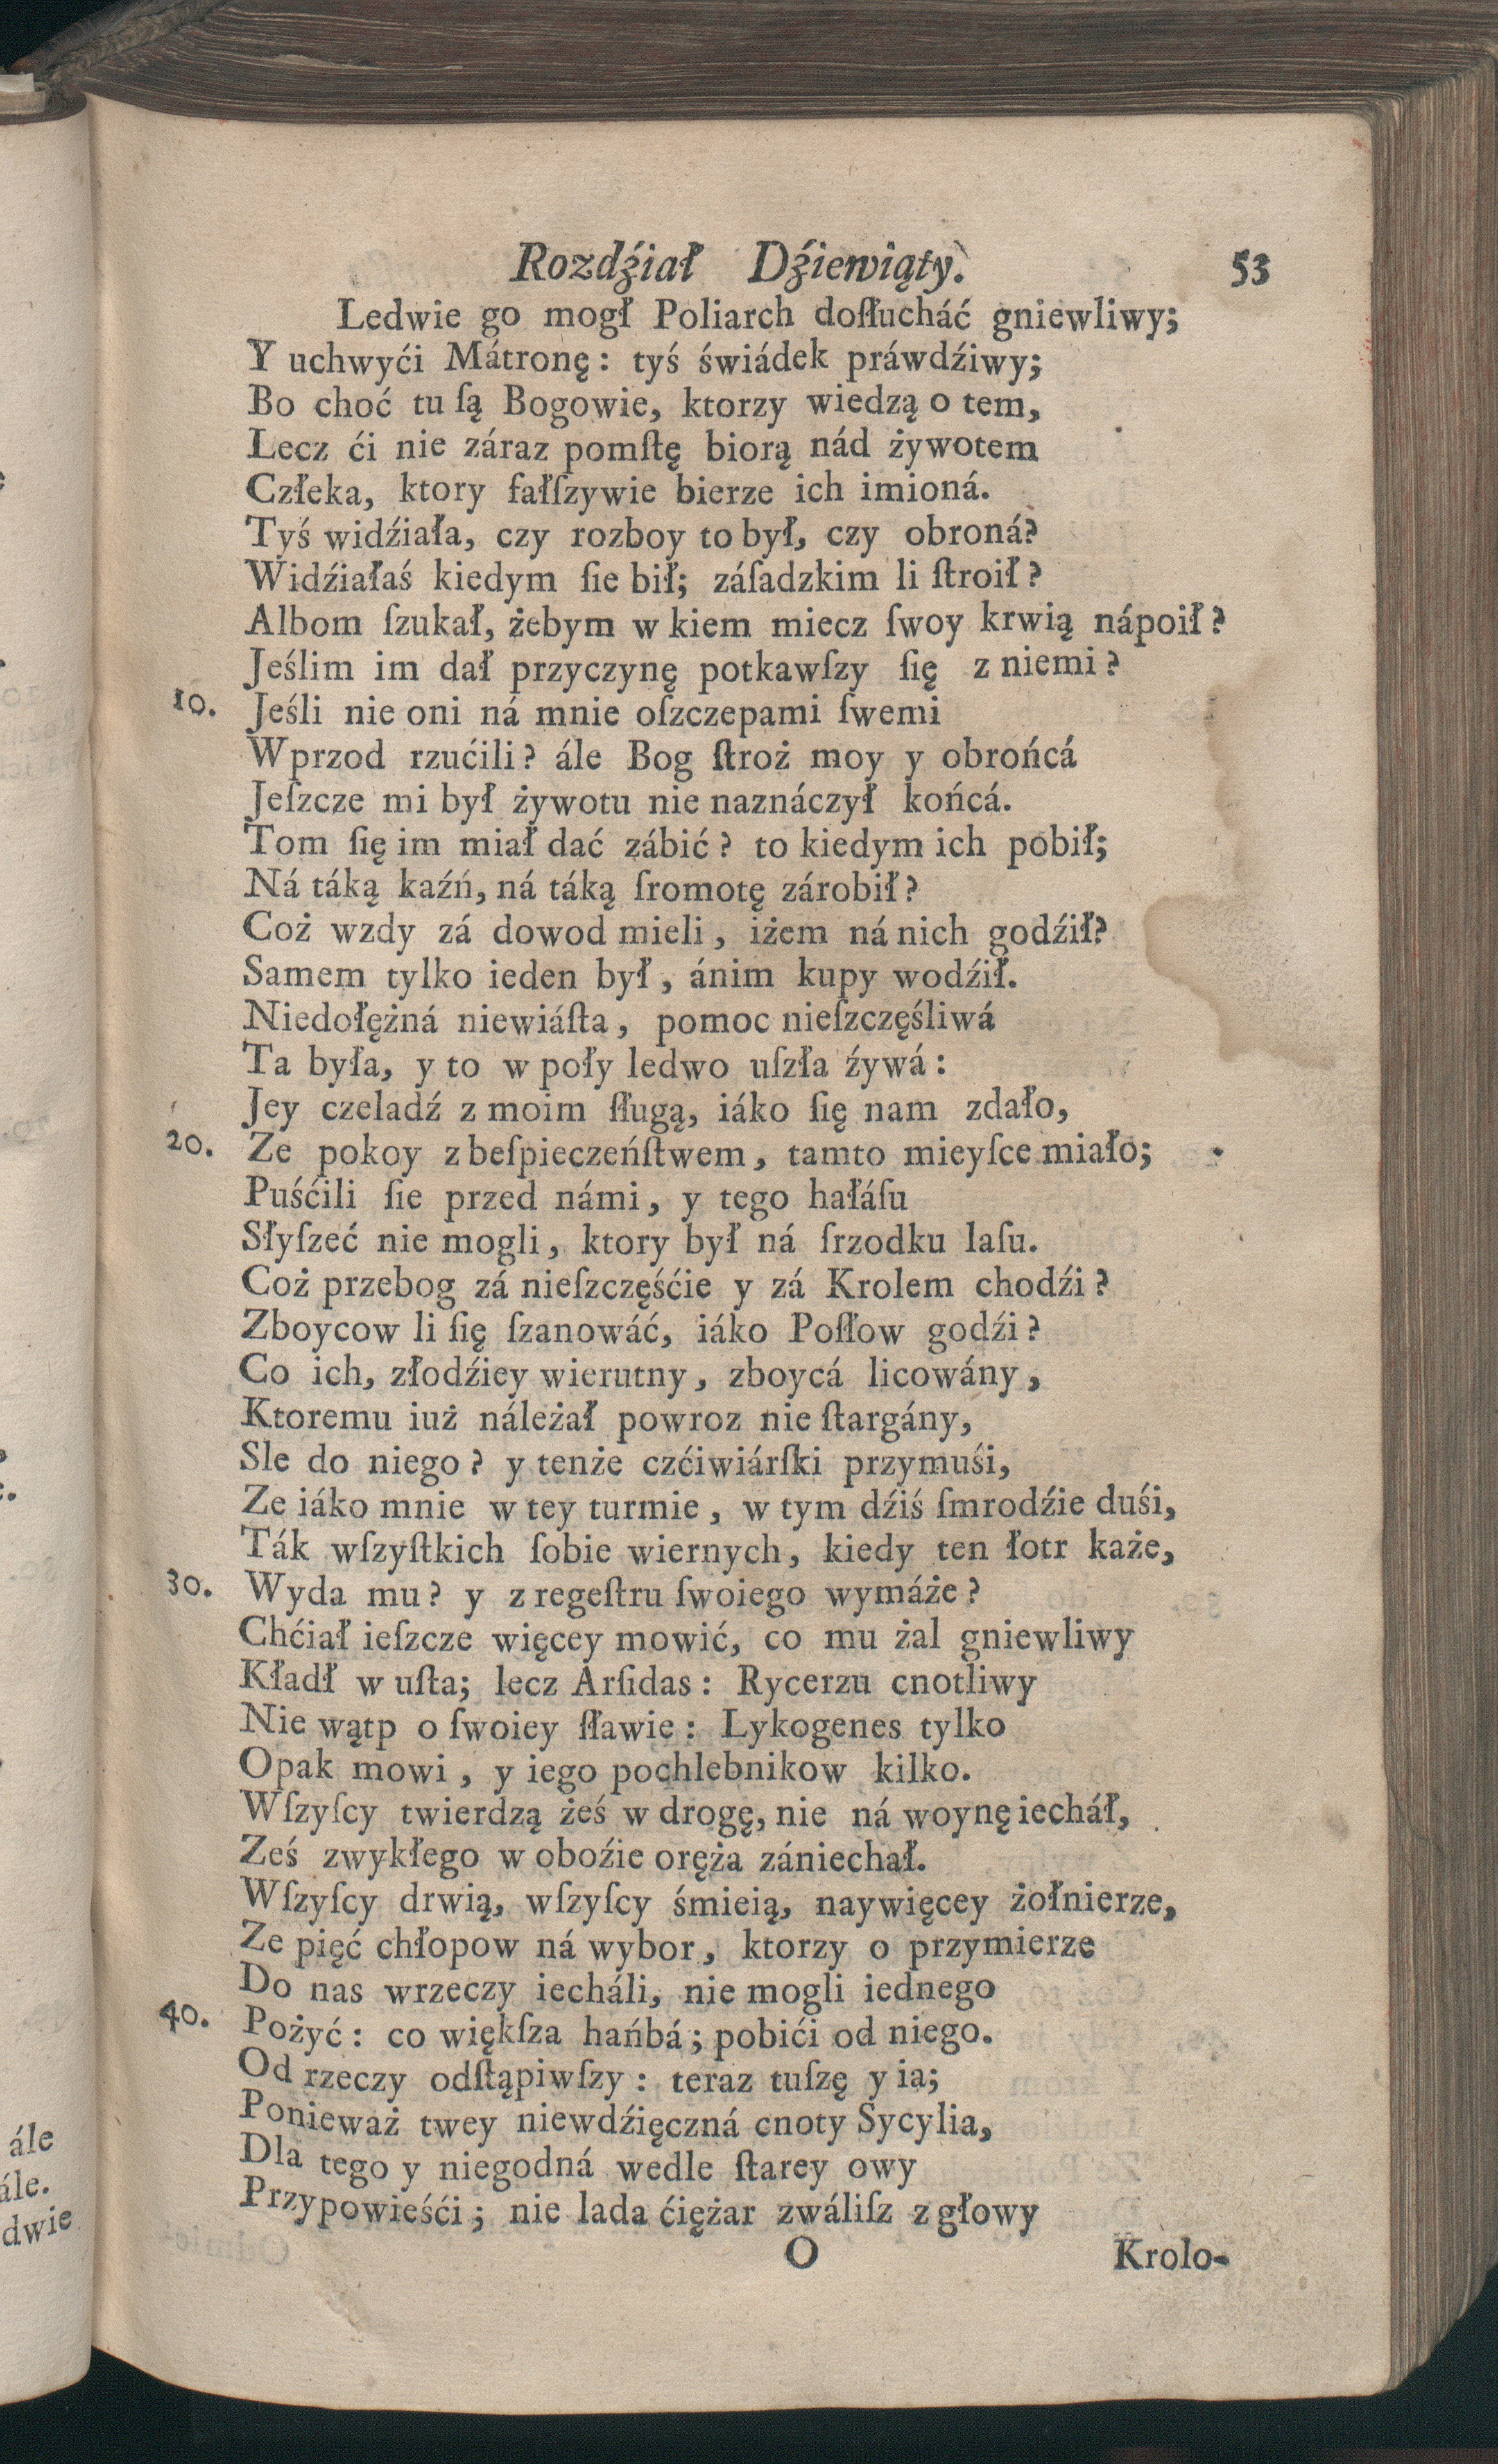 Rozdźiał Dźiewiąty. 53
Ledwie go mogł Poliarch doſłucháć gniewliwy;
Y uchwyći Mátronę: tyś świádek práwdźiwy;
Bo choć tu ſą Bogowie, ktorzy wiedzą o tem,
Lecz ći nie záraz pomſtę biorą nád żywotem
Człeka, ktory fałſzywie bierze ich imioná.
Tyś widźiała, czy rozboy to był, czy obroná?
Widźiałaś kiedym ſie bił; záſadzkim li ſtroił?
Albom ſzukał, żebym w kiem miecz ſwoy krwią nápoił?
Jeślim im dał przyczynę potkawſzy ſię z niemi?
10. Jeśli nie oni ná mnie oſzczepami ſwemi
Wprzod rzućili? ále Bog ſtroż moy y obrońcá
Jeſzcze mi był żywotu nie naznáczył końcá.
Tom ſię im miał dać zábić? to kiedym ich pobił;
Ná táką kaźń, ná táką ſromotę zárobił?
Coż wzdy zá dowod mieli, iżem ná nich godźił?
Samem tylko ieden był, ánim kupy wodźił.
Niedołężná niewiáſta, pomoc nieſzczęśliwá
Ta była, y to w poły ledwo uſzła źywá:
Jey czeladź z moim ſługą, iáko ſię nam zdało,
20. Ze pokoy z beſpieczeńſtwem, tamto mieyſce miało;
Puśćili ſie przed námi, y tego hałáſu
Słyſzeć nie mogli, ktory był ná ſrzodku laſu.
Coż przebog zá nieſzczęśćie y zá Krolem chodźi?
Zboycow li ſię ſzanowáć, iáko Poſłow godźi?
Co ich, złodźiey wierutny, zboycá licowány,
Ktoremu iuż náleżał powroz nie ſtargány,
Sle do niego? y tenże czćiwiárſki przymuśi,
Ze iáko mnie w tey turmie, w tym dźiś ſmrodźie duśi,
Ták wſzyſtkich ſobie wiernych, kiedy ten łotr każe,
30. Wyda mu? y z regeſtru ſwoiego wymáże?
Chćiał ieſzcze więcey mowić, co mu żal gniewliwy
Kładł w uſta; lecz Arſidas: Rycerzu cnotliwy
Nie wątp o ſwoiey ſławie: Lykogenes tylko
Opak mowi, y iego pochlebnikow kilko.
Wſzyſcy twierdzą żeś w drogę, nie ná woynę iecháł,
Ześ zwykłego w oboźie oręża zániechał.
Wſzyſcy drwią, wſzyſcy śmieią, naywięcey żołnierze,
Ze pięć chłopow ná wybor, ktorzy o przymierze
Do nas wrzeczy iecháli, nie mogli iednego
40. Pożyć: co więkſza hańbá; pobići od niego.
Od rzeczy odſtąpiwſzy: teraz tuſzę y ia;
Ponieważ twey niewdźięczná cnoty Sycylia,
Dla tego y niegodná wedle ſtarey owy
Przypowieśći; nie lada ćiężar zwáliſz z głowy
O Krolo-
ále
ále.
dwie